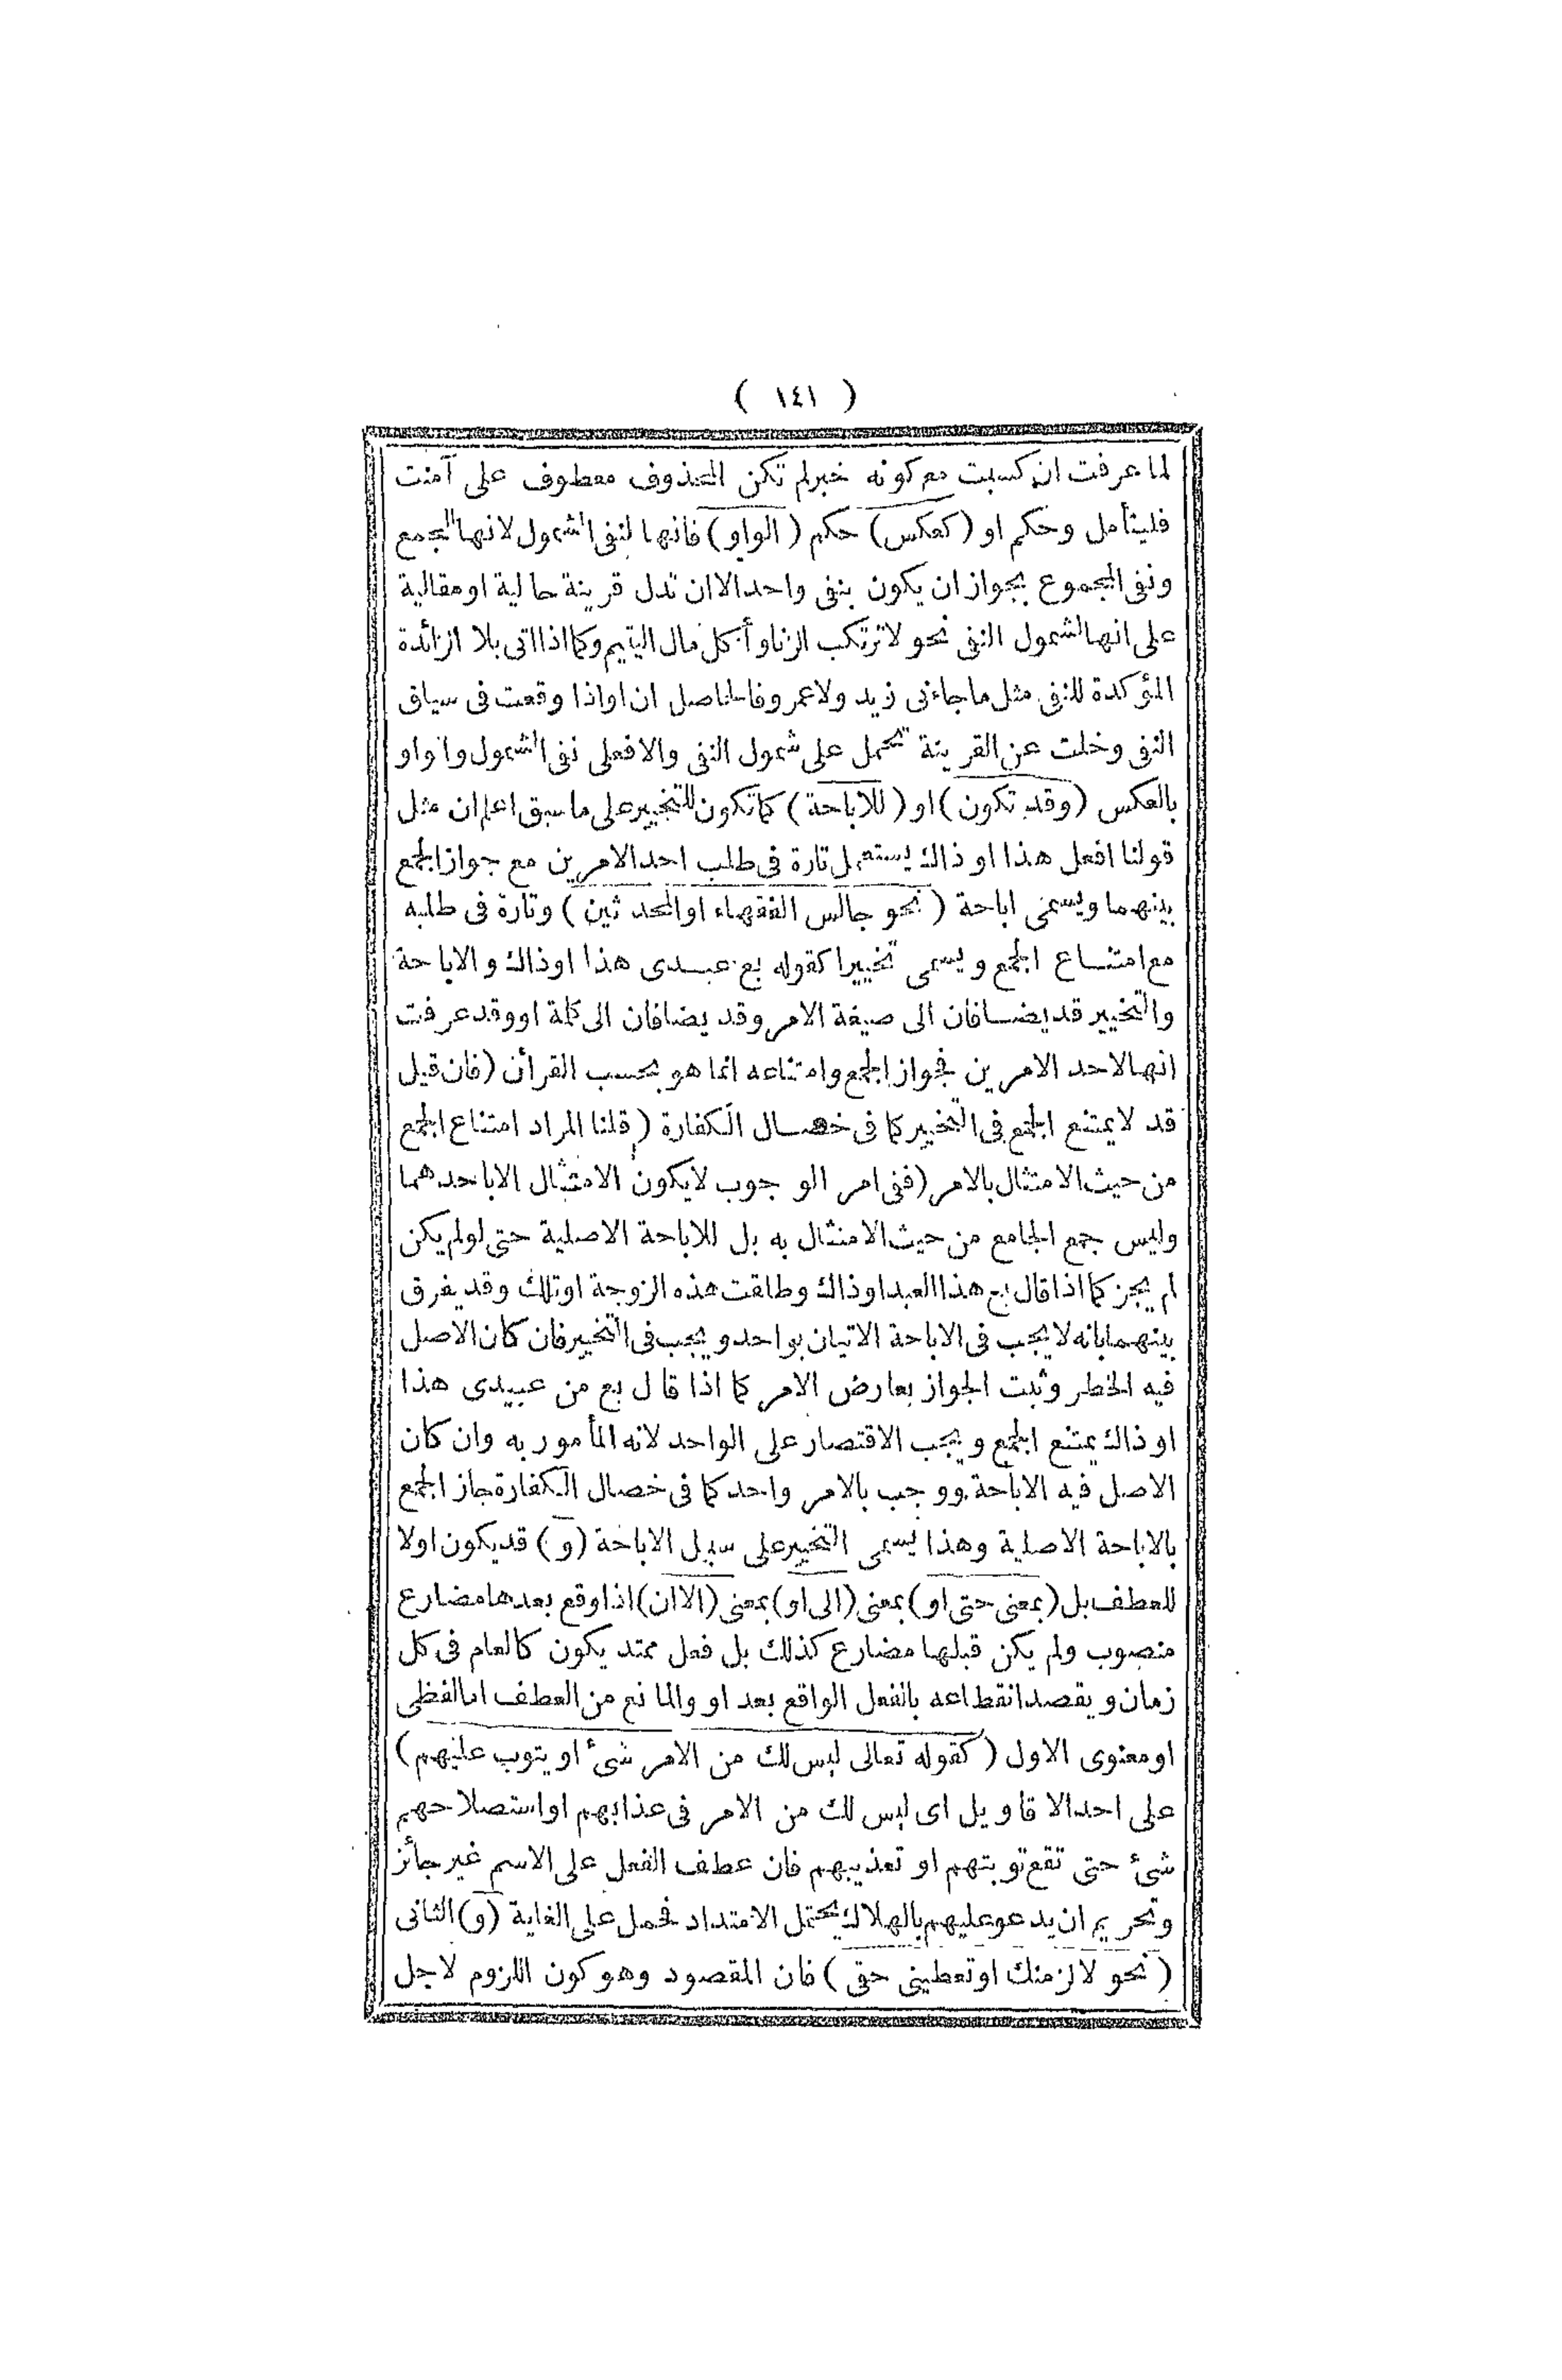 ( ١٤١ )
لما عرفت ان كسبت مع كونه خبرلم تكن المحذوف معطوف على آمنت
فليتأمل وحكم او (كعكس) حكم (الواو) فانها لنفى الشمول لانها للجمع
ونفى المجموع يجوز ان يكون بنفى واحد الا ان تدل قرينة حالية او مقالية
على انها لشمول النفى نحو لا ترتكب الزنا وأكل مال اليتيم وكما اذا اتى بلا الزائدة
المؤكدة للنفى مثل ما جاءنى زيد ولا عمرو فالحاصل ان او اذا وقعت فى سياق
النفى وخلت عن القرينة تحمل على شمول النفى والا فعلى نفى الشمول والواو
بالعكس (وقد تكون) او (للاباحة) كما تكون للتخيير على ما سبق اعلم ان مثل
قولنا افعل هذا او ذاك يستعمل تارة فى طلب احد الامرين مع جواز الجمع
بينهما ويسمى اباحة (نحو جالس الفقهاء او المحدثين) وتارة فى طلبه
مع امتناع الجمع ويسمى تخييرا كقوله بع عبدى هذا او ذاك والاباحة
والتخيير قد يضافان الى صيغة الامر وقد يضافان الى كلة او وقد عرفت
انها لاحد الامرين فجواز الجمع وامتناعه انما هو بحسب القرأن (فان قيل
قد لا يمتنع الجمع فى التخيير كما فى خصال الكفارة (قلنا المراد امتناع الجمع
من حيث الامتثال بالامر (ففى امر الوجوب لا يكون الامتثال الا باحدهما
وليس جمع الجامع من حيث الامتثال به بل للاباحة الاصلية حتى لولم يكن
لم يجز كما اذا قال بع هذا العبد او ذاك وطلقت هذه الزوجة او تلك وقد يفرق
بينهما بانه لا يجب فى الاباحة الاتيان بواحد و يجب فى التخيير فان كان الاصل
فيه الخطر وثبت الجواز بعارض الامر كما اذا قال بع من عبيدى هذا
او ذاك يمتنع الجمع و يجب الاقتصار على الواحد لانه المأمور به وان كان
الاصل فيه الاباحة ووجب بالامر واحد كما فى خصال الكفارة جاز الجمع
بالاباحة الاصلية وهذا يسمى التخيير على سبيل الاباحة (و) قد يكون او لا
للعطف بل (بمعنى حتى او) بمعنى (الى او) بمعنى (الا ان) اذا وقع بعدها مضارع
منصوب ولم يكن قبلها مضارع كذلك بل فعل ممتد يكون كالعام فى كل
زمان و يقصد انقطاعه بالفعل الواقع بعد او والمانع من العطف اما لفظى
او معنوى الاول (كقوله تعالى ليس لك من الامر شئ او يتوب عليهم)
على احد الاقاويل اى ليس لك من الامر فى عذابهم او استصلاحهم
شئ حتى تقع توبتهم او تعذيبهم فان عطف الفعل على الاسم غير جائز
وتحريم ان يدعو عليهم بالهلاك يحتمل الامتداد فحمل على الغاية (و) الثانى
(نحو لالزمنك او تعطينى حقى) فان المقصود وهو كون اللزوم لاجل